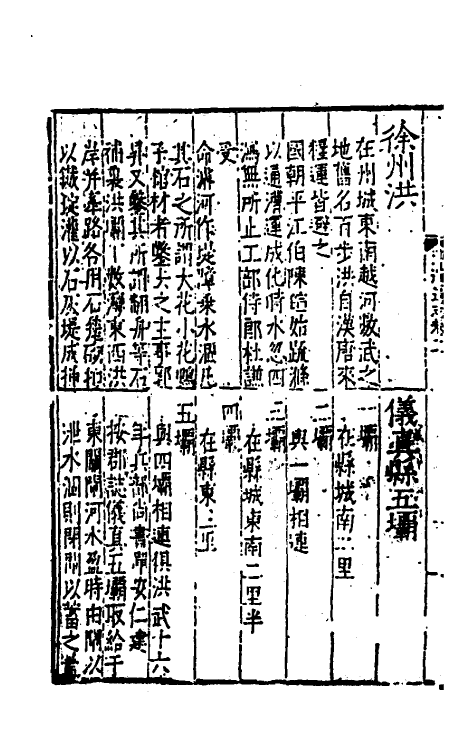 徐州洪
在州城東南越河數武之
地舊名百步洪自漢唐來
程運皆避之
國朝平江伯陳瑄始疏滌
以通漕運成化時水忽四
溢無所止工部侍郎杜謙
受
命濬河作堤障乗水涸
其石之所謂大花小花
昇又鑿其所謂翻舟等石
東西洪
岸并牽路各用石
以鐵錠灌以石灰堤成
儀真縣五壩
一壩
在縣城南二里
二壩
與一壩相連
三壩
在縣城東南二里半
四壩
在縣東三里
五壩
與四壩相連俱洪武十六
年兵部尚書單安仁建
按郡誌儀真五壩取給于
東關閘河水盈時由閘以
泄水涸則閉閘以蓄之